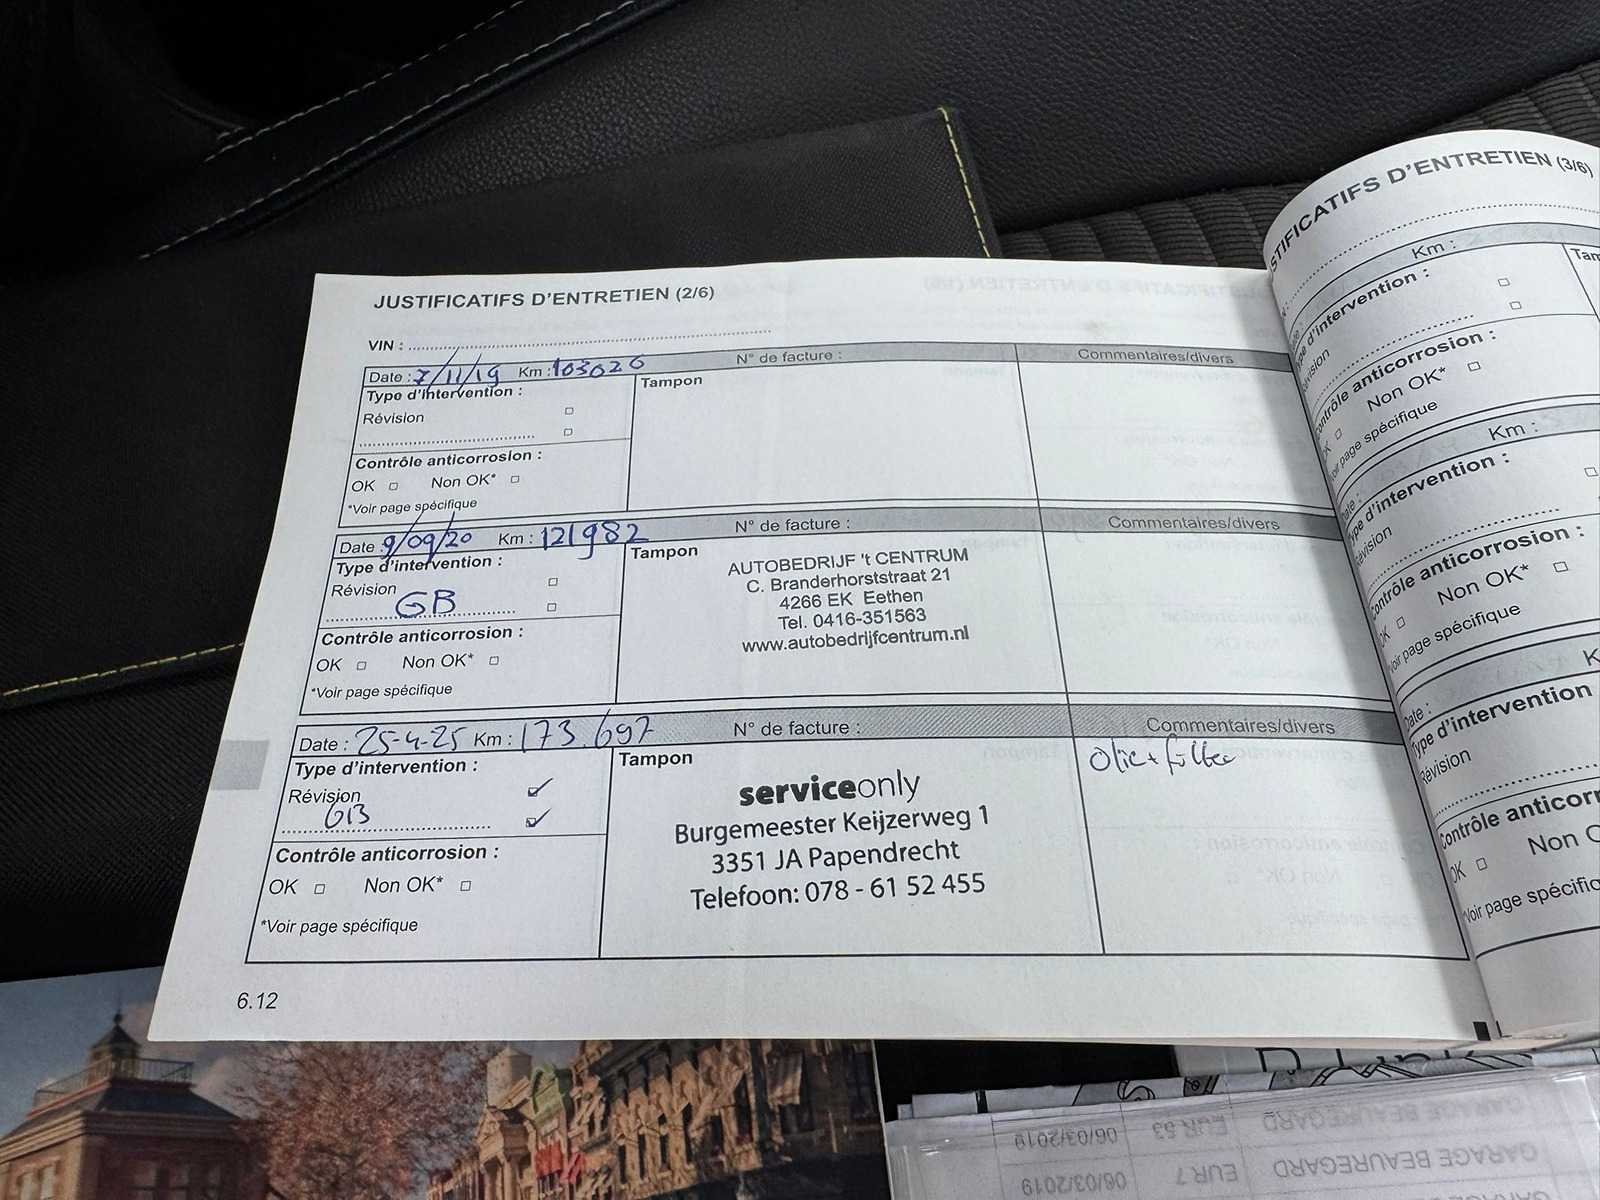 JUSTIFICATIFS D'ENTRETIEN (2/6)
VIN :
Date : 7/11/19 Km : 103026 N° de facture : Commentaires/divers
Type d'intervention : Tampon
Révision
Contrôle anticorrosion :
OK Non OK*
*Voir page spécifique
Date : 9/09/20 Km : 121982 N° de facture : Commentaires/divers
Type d'intervention : Tampon
Révision
GB
Contrôle anticorrosion :
OK Non OK*
*Voir page spécifique
AUTOBEDRIJF 't CENTRUM
C. Branderhorststraat 21
4266 EK Eethen
Tel. 0416-351563
www.autobedrijfcentrum.nl
Date : 25-4-25 Km : 173.697 N° de facture : Commentaires/divers
Type d'intervention : Tampon
Révision
GB
Contrôle anticorrosion :
OK Non OK*
*Voir page spécifique
serviceonly
Burgemeester Keijzerweg 1
3351 JA Papendrecht
Telefoon: 078 - 61 52 455
Olie + filter
6.12
JUSTIFICATIFS D'ENTRETIEN (3/6)
Km :
Type d'intervention :
Révision
Contrôle anticorrosion :
OK Non OK*
*Voir page spécifique
Km :
Type d'intervention :
Révision
Contrôle anticorrosion :
OK Non OK*
*Voir page spécifique
Date :
Type d'intervention
Révision
OK Non
GARAGE BEAUREGARD EUR 53 06/03/2019
GARAGE BEAUREGARD EUR 7 06/03/2019